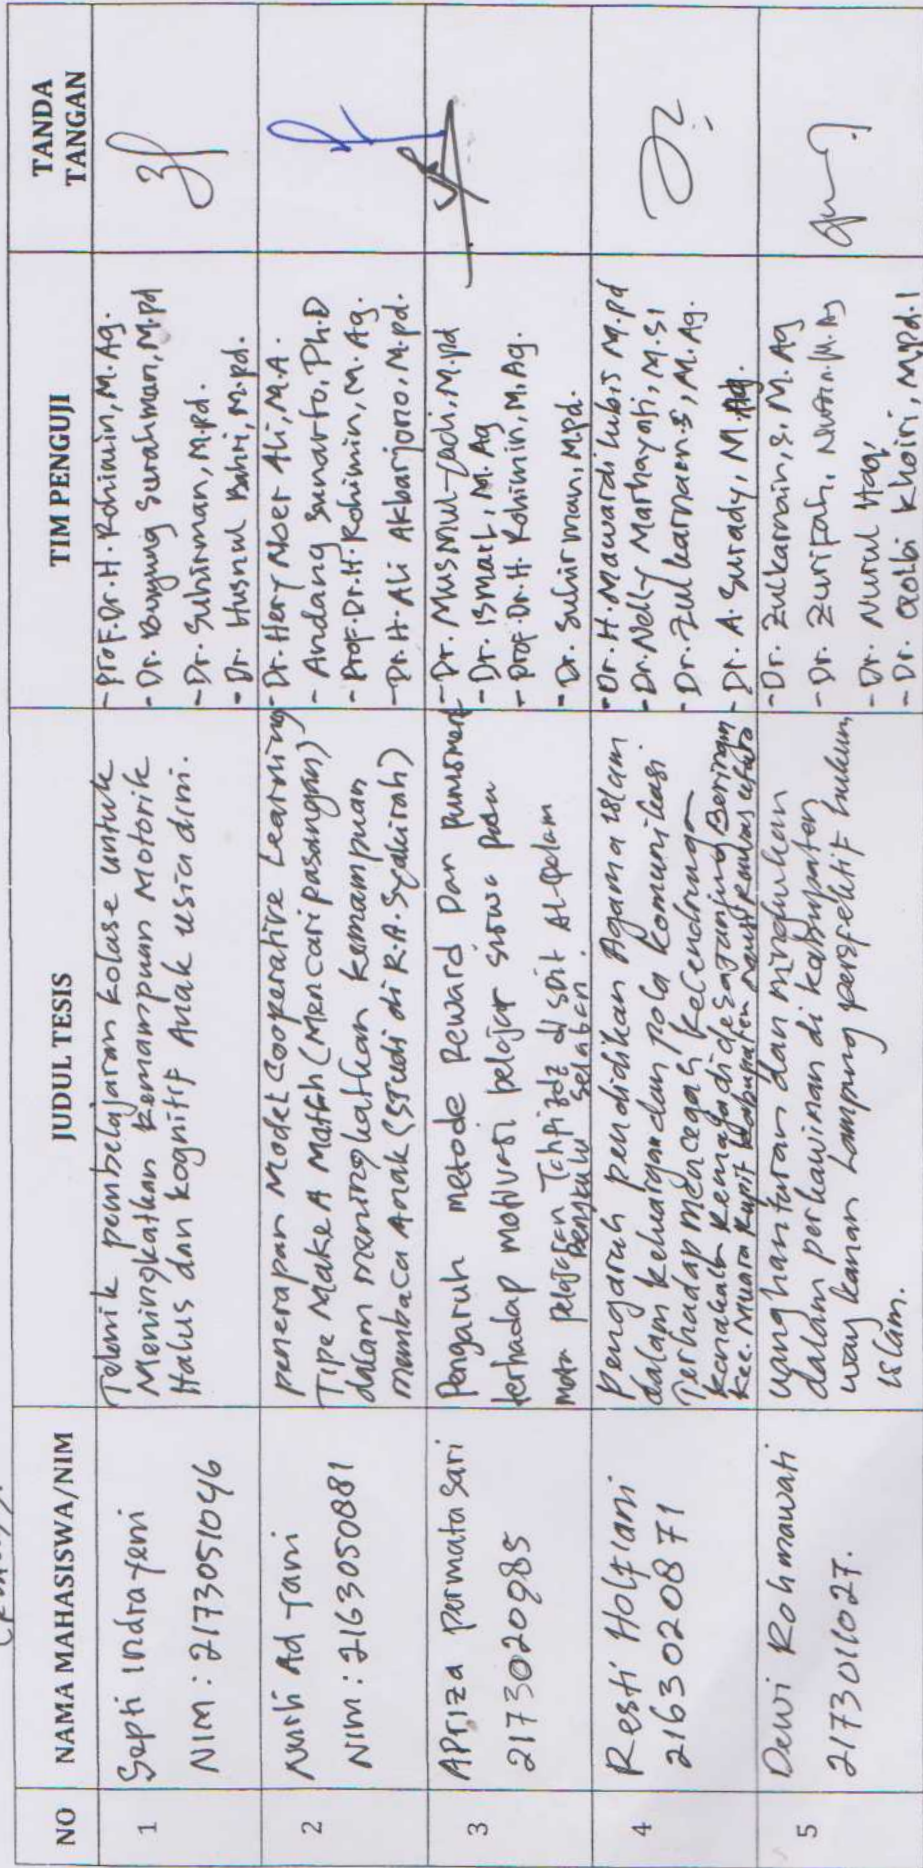 NO NAMA MAHASISWA/NIM JUDUL TESIS TIM PENGUJI TANDA TANGAN
1
Septi Indrayeni
NIM : 2173051046
Teknik pembelajaran kolase untuk
Meningkatkan Kemampuan Motorik
Halus dan kognitif Anak usia dini.
- Prof. Dr. H. Rohimin, M. Ag.
- Dr. Buyung Surahman, M.pd
- Dr. Suhirman, M.pd.
- Dr. Husnul Bahri, M.pd.
2
NIM : 2163050881
penerapan Model Cooperative Learning
Tipe Make A Match (Mencari pasangan)
dalam meningkatkan kemampuan
membaca Anak (Studi di R.A. Syakirah)
- Dr. Hery Noer Ali, M.A.
- Andang Sunarto, Ph.D
- Prof. Dr. H. Rohimin, M. Ag.
- Dr. H. Ali Akbarjono, M.pd.
3
APriza permata Sari
2173020985
Pengaruh metode Reward Dan punisment
terhadap motivasi belajar siswa pada
mata pelajaran Tahfizdz di SDIT Al-Qalam
Bengkulu Selatan.
- Dr. Musmul-yadi, M.pd
- Dr. Ismail, M. Ag
- Prof. Dr. H. Rohimin, M. Ag.
- Dr. Suhirman, M.pd.
4
Resti Holfiani
2163020871
Pengaruh pendidikan Agama islam
dalam keluarga dan pola komunikasi
Terhadap Mencegah kecendrungan
kenakalan Remaja di desa Tanjung Beringin
Kec. Muara Rupit Kabupaten Musi Rawas utara
- Dr. H. Mawardi Lubis M.pd
- Dr. Nelly Marhayati, M.Si
- Dr. Zulkarnain S, M. Ag.
- Dr. A. Suradi, M. Ag.
5
Dewi Rohmawati
2173011027.
uang hantaran dan
dalam perkawinan di kabupaten
way kanan Lampung perspektif hukum
islam.
- Dr. Zulkarnain, S, M. Ag
- Dr. M. Ag
- Dr. Nurul Haq,
- Dr. Qolbi Khoiri, M.pd.I